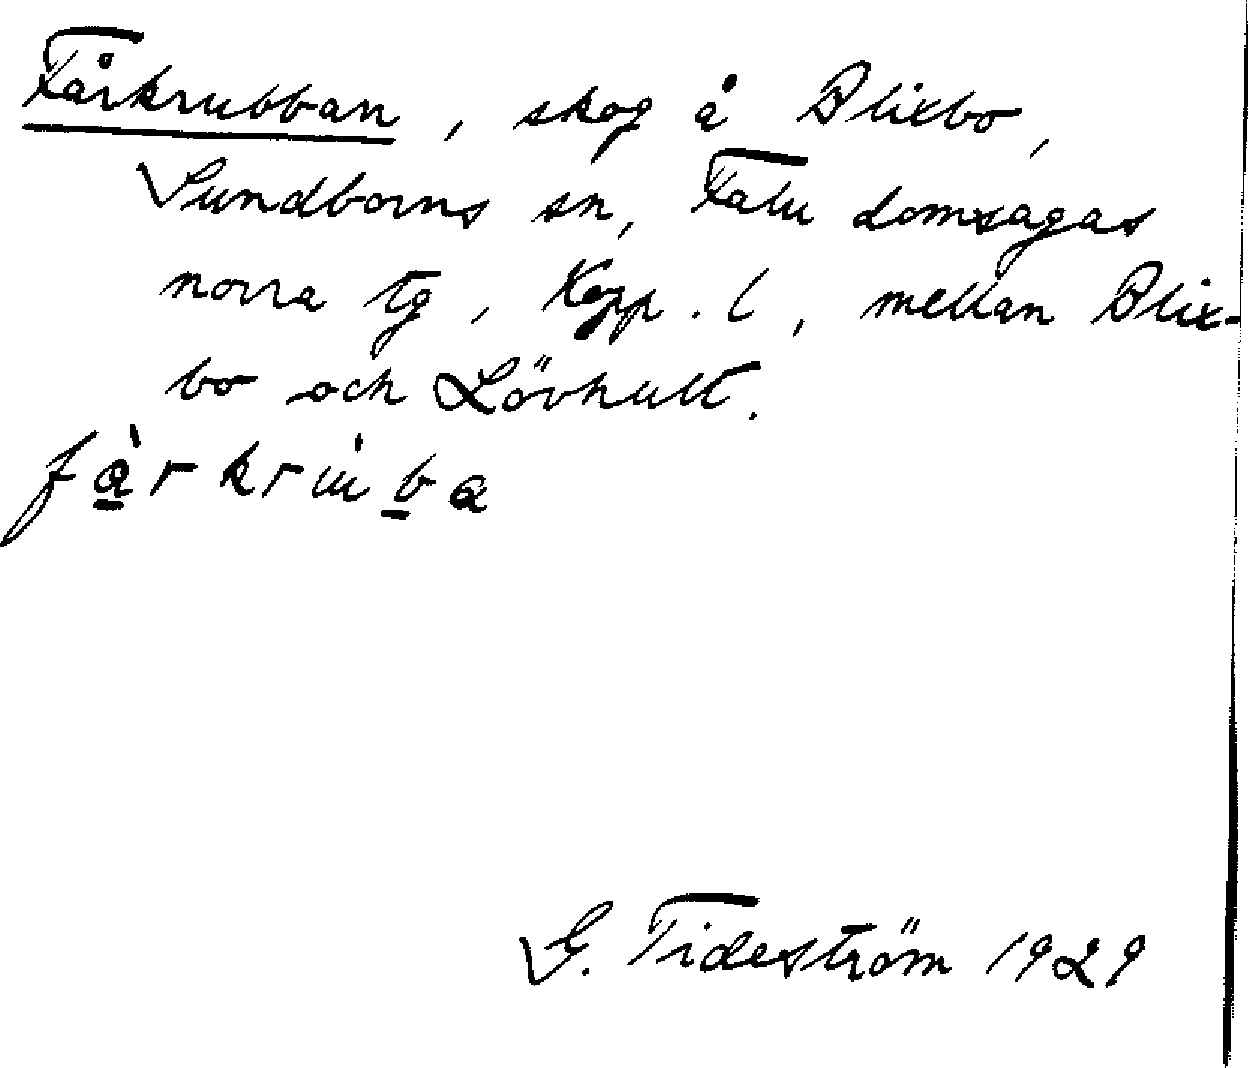 Fårkrubban, skog å Blixbo,
Sundborns sn, Falu domsagas
norra tg, Kopp. l, mellan Blix-
bo och Lövhult.
G. Tideström 1929